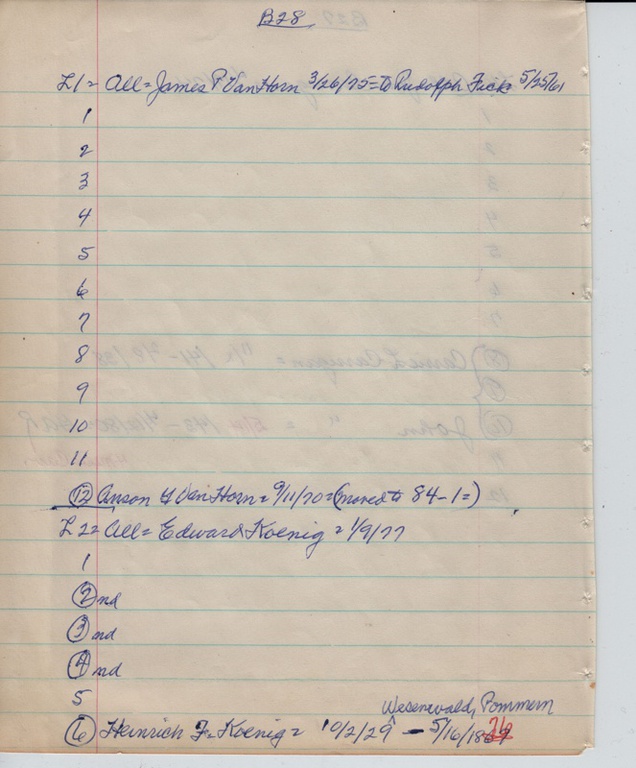 B28
L1 = All = James P Van Horn 3/26/75 = to Rudolph Fick = 5/25/61
1
2
3
4
5
6
7
8
9
10
11
(12) Anson Y Van Horn = 9/11/70 = (moved to 84-1=)
L2 = All = Edward Koenig = 1/9/77
1
(2) nd
(3) nd
(4) nd
5
Wesenwald, Pommern
(6) Heinrich F. Koenig = 10/2/29 ^ - 5/16/18